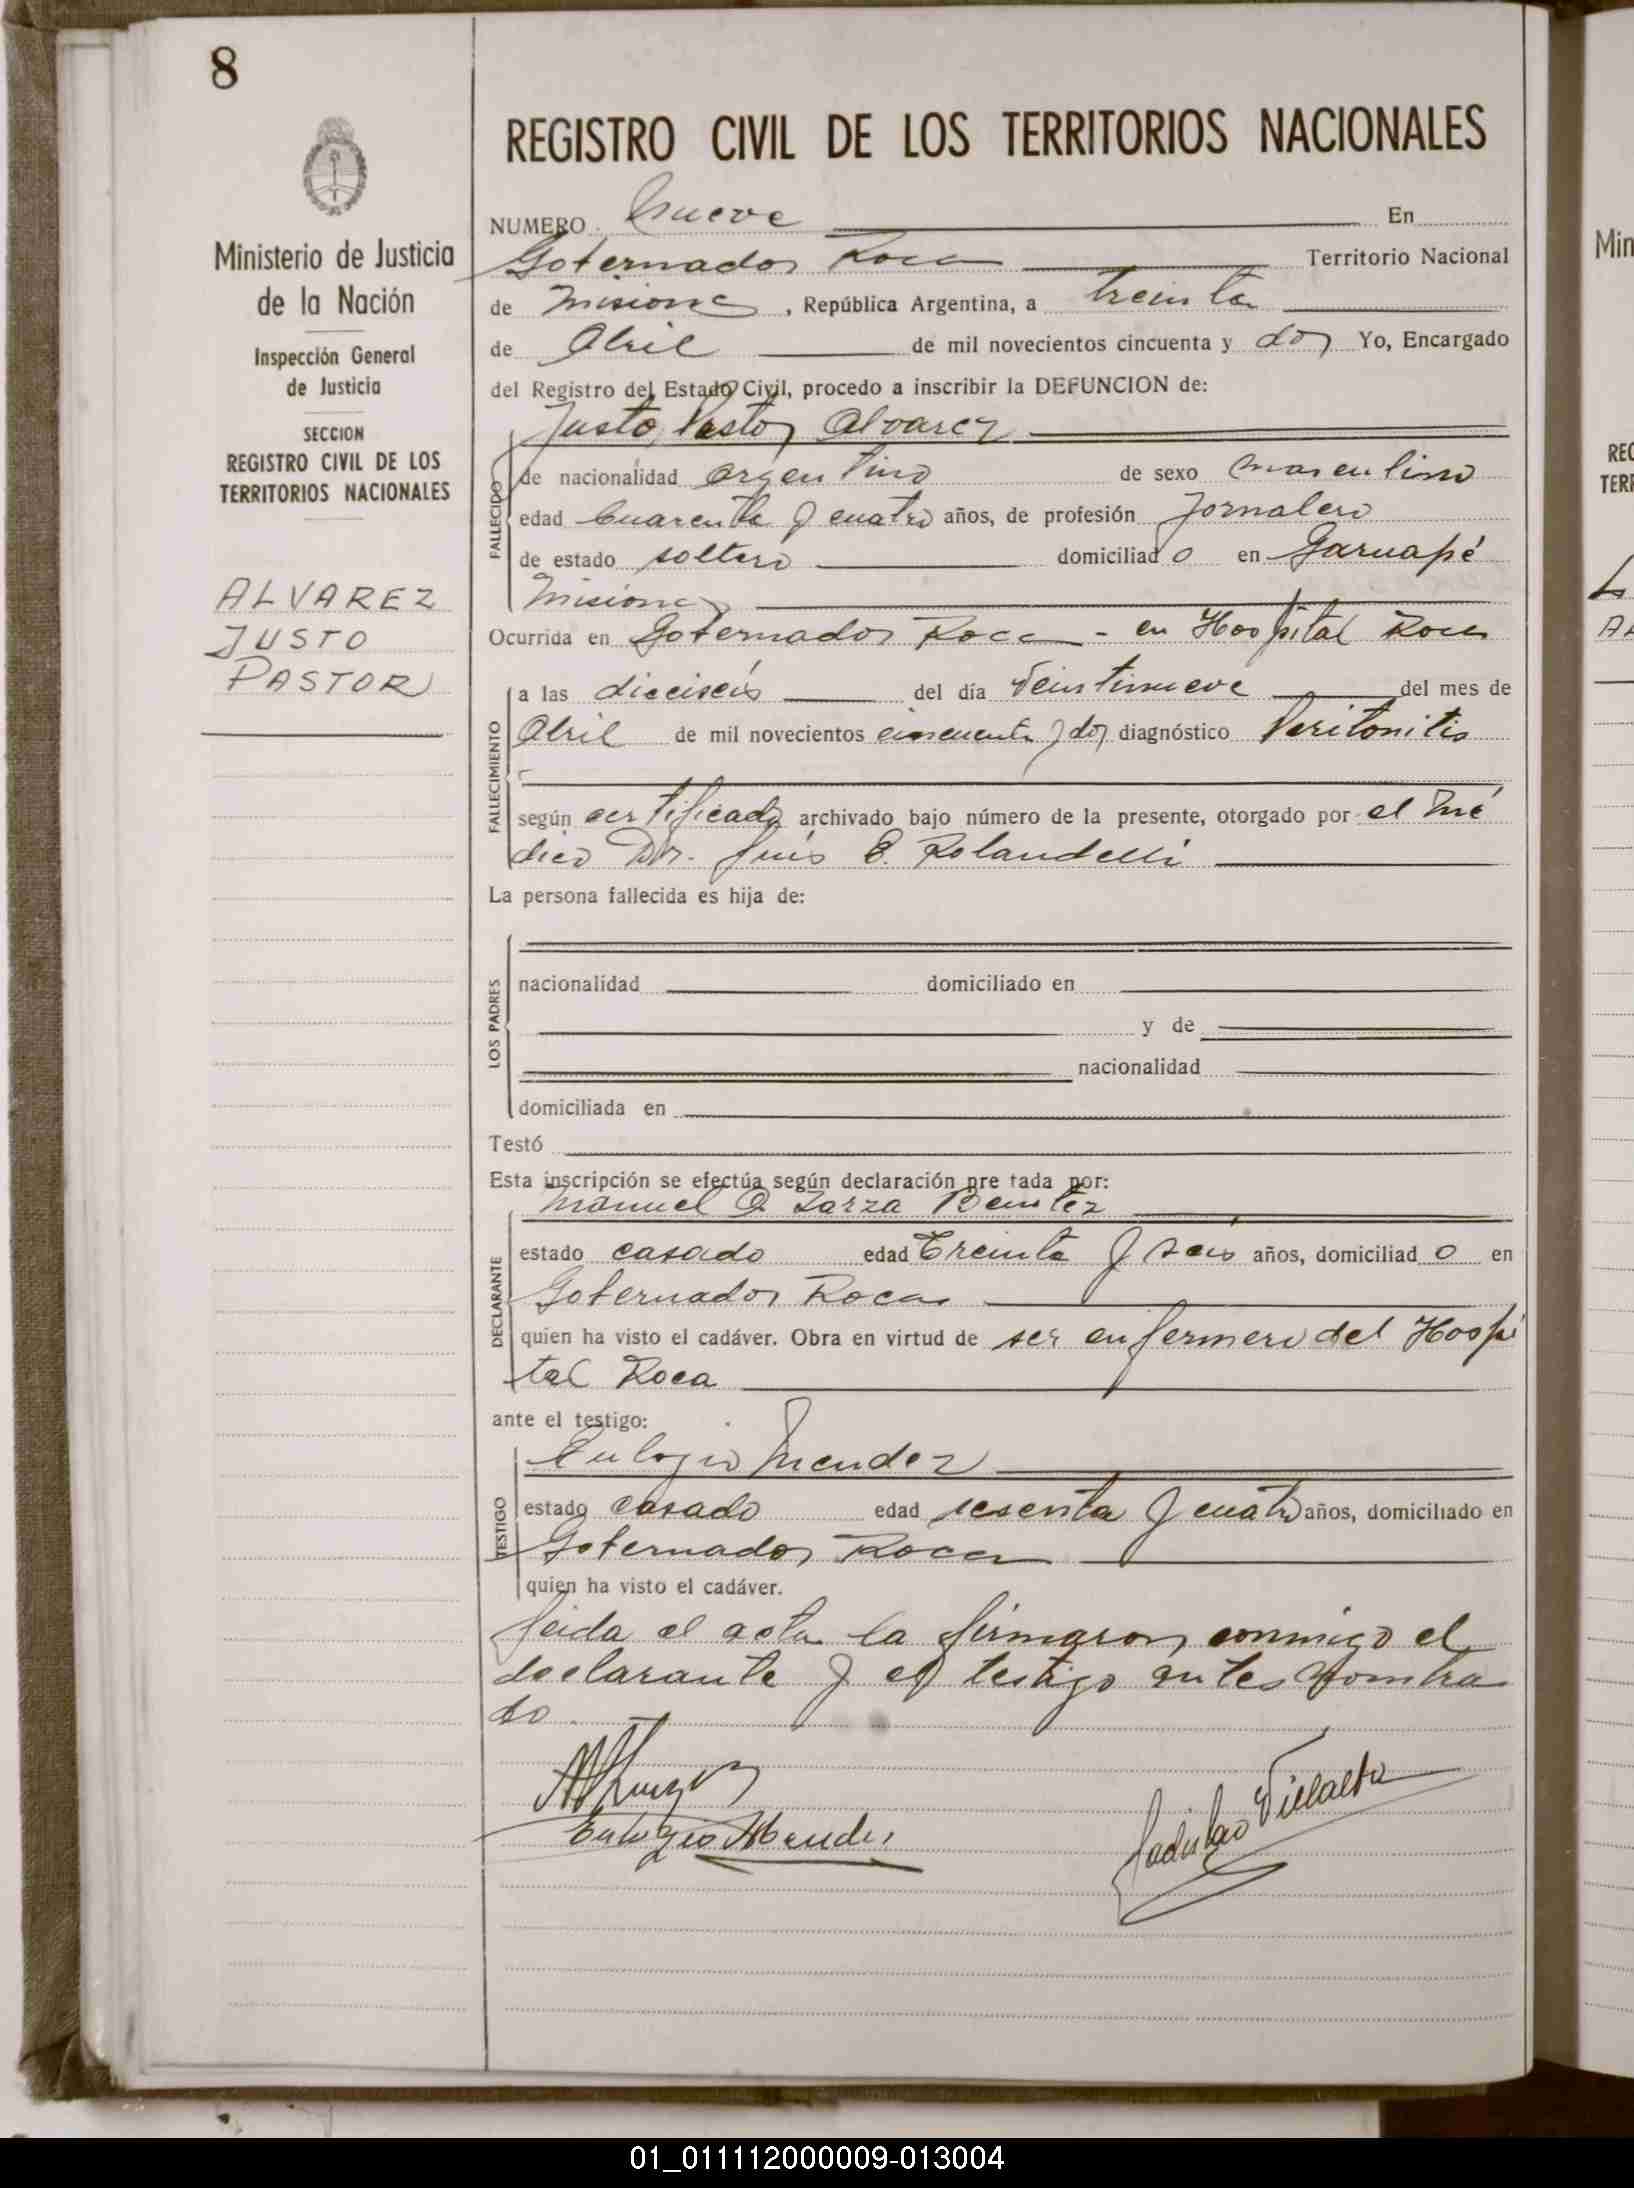 8
Ministerio de Justicia
de la Nación
Inspección General
de Justicia
SECCION
REGISTRO CIVIL DE LOS
TERRITORIOS NACIONALES
ALVAREZ
JUSTO
PASTOR
REGISTRO CIVIL DE LOS TERRITORIOS NACIONALES
NUMERO Nueve En
Gobernador Roca Territorio Nacional
de Misiones, República Argentina, a treinta
de Abril de mil novecientos cincuenta y dos Yo, Encargado
del Registro del Estado Civil, procedo a inscribir la DEFUNCION de:
Justo Pastor Alvarez
FALLECIDO
de nacionalidad argentino de sexo masculino
edad Cuarenta y cuatro años, de profesión Jornalero
de estado soltero domiciliado en Garuapé
Misiones
Ocurrida en Gobernador Roca - en Hospital Roca
FALLECIMIENTO
a las dieciseis del día Veintinueve del mes de
Abril de mil novecientos cincuenta y dos diagnóstico Peritonitis
según certificado archivado bajo número de la presente, otorgado por el Mé
dico Dr. Luis E. Rolandelli
La persona fallecida es hija de:
LOS PADRES
nacionalidad domiciliado en
y de
nacionalidad
domiciliada en
Testó
Esta inscripción se efectúa según declaración pre tada por:
Manuel O. Zarza Benitez
DECLARANTE
estado casado edad Treinta y seis años, domiciliado en
Gobernador Roca
quien ha visto el cadáver. Obra en virtud de ser enfermero del Hospi
tal Roca
ante el testigo:
Eulogio Mendez
TESTIGO
estado casado edad sesenta y cuatro años, domiciliado en
Gobernador Roca
quien ha visto el cadáver.
Leida el acta la firmaron conmigo el
declarante y el testigo antes nombra
do.
Eulogio Mendez
Ladislao Villalba
Min
REG
TERR
01_011112000009-013004